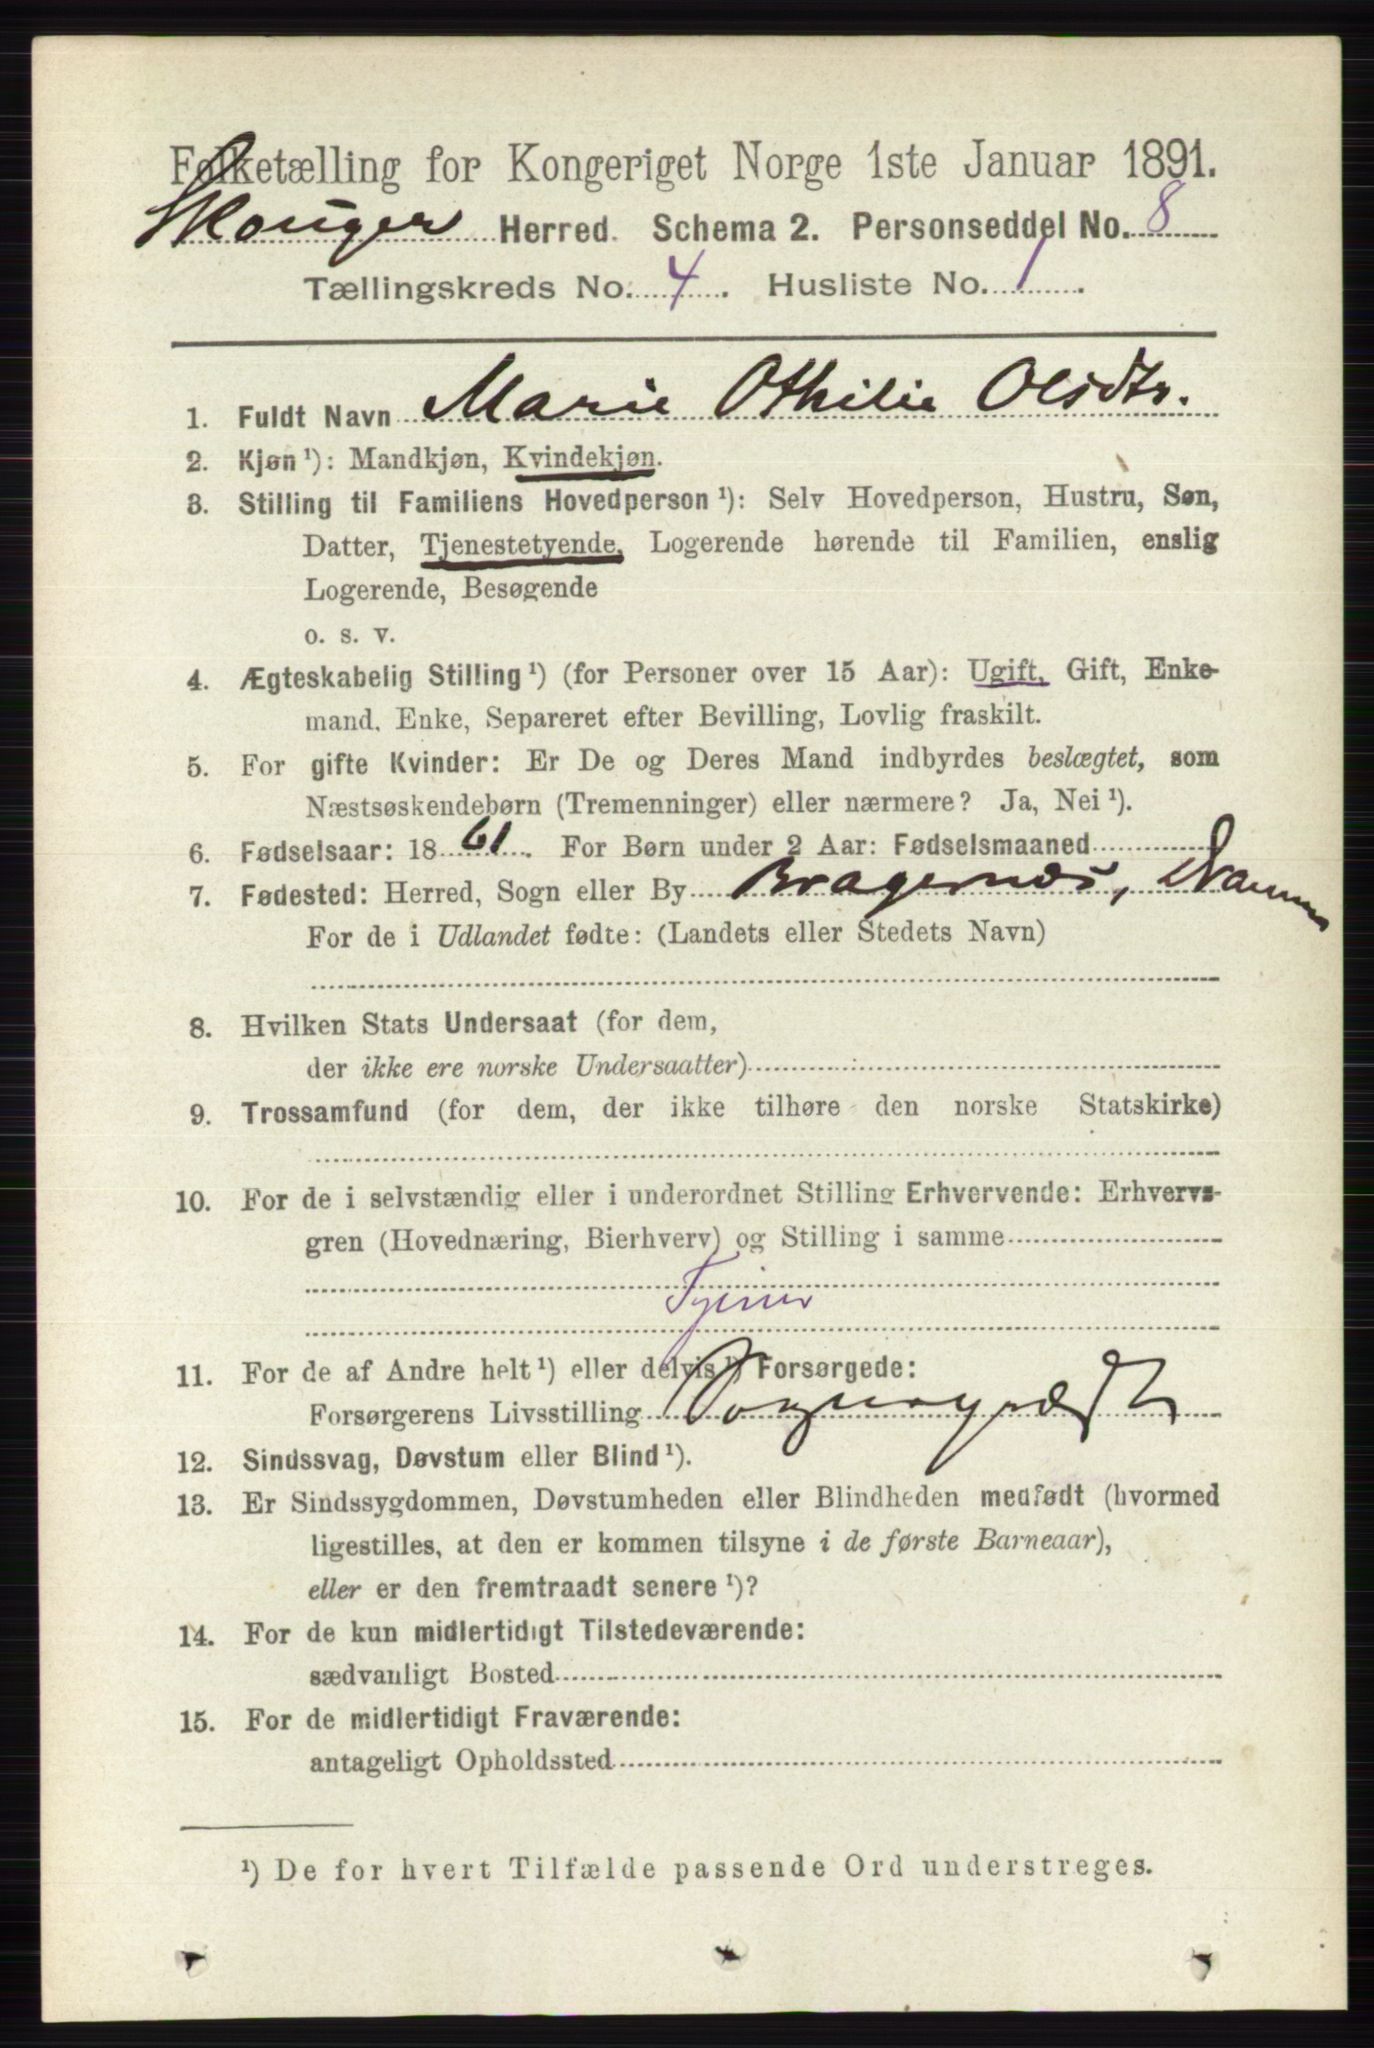 Folketælling for Kongeriget Norge 1ste Januar 1891.
Skouger Herred. Schema 2. Personseddel No. 8
Tællingskreds No. 4. Husliste No. 1.
1. Fuldt Navn Marie Othilie Olsdtr.
2. Kjøn ¹): Mandkjøn, Kvindekjøn.
3. Stilling til Familiens Hovedperson ¹): Selv Hovedperson, Hustru, Søn,
Datter, Tjenestetyende, Logerende hørende til Familien, enslig
Logerende, Besøgende
o. s. v.
4. Ægteskabelig Stilling ¹) (for Personer over 15 Aar): Ugift, Gift, Enke-
mand, Enke, Separeret efter Bevilling, Lovlig fraskilt.
5. For gifte Kvinder: Er De og Deres Mand indbyrdes beslægtet, som
Næstsøskendebørn (Tremenninger) eller nærmere? Ja, Nei ¹).
6. Fødselsaar: 1861. For Børn under 2 Aar: Fødselsmaaned
7. Fødested: Herred, Sogn eller By Bragernæs,
For de i Udlandet fødte: (Landets eller Stedets Navn)
8. Hvilken Stats Undersaat (for dem,
der ikke ere norske Undersaatter)
9. Trossamfund (for dem, der ikke tilhøre den norske Statskirke)
10. For de i selvstændig eller i underordnet Stilling Erhvervende: Erhvervs-
gren (Hovednæring, Bierhverv) og Stilling i samme
11. For de af Andre helt ¹) eller delvis ¹) Forsørgede:
Forsørgerens Livsstilling
12. Sindssvag, Døvstum eller Blind ¹).
13. Er Sindssygdommen, Døvstumheden eller Blindheden medfødt (hvormed
ligestilles, at den er kommen tilsyne i de første Barneaar),
eller er den fremtraadt senere ¹)?
14. For de kun midlertidigt Tilstedeværende:
sædvanligt Bosted
15. For de midlertidigt Fraværende:
antageligt Opholdssted
¹) De for hvert Tilfælde passende Ord understreges.